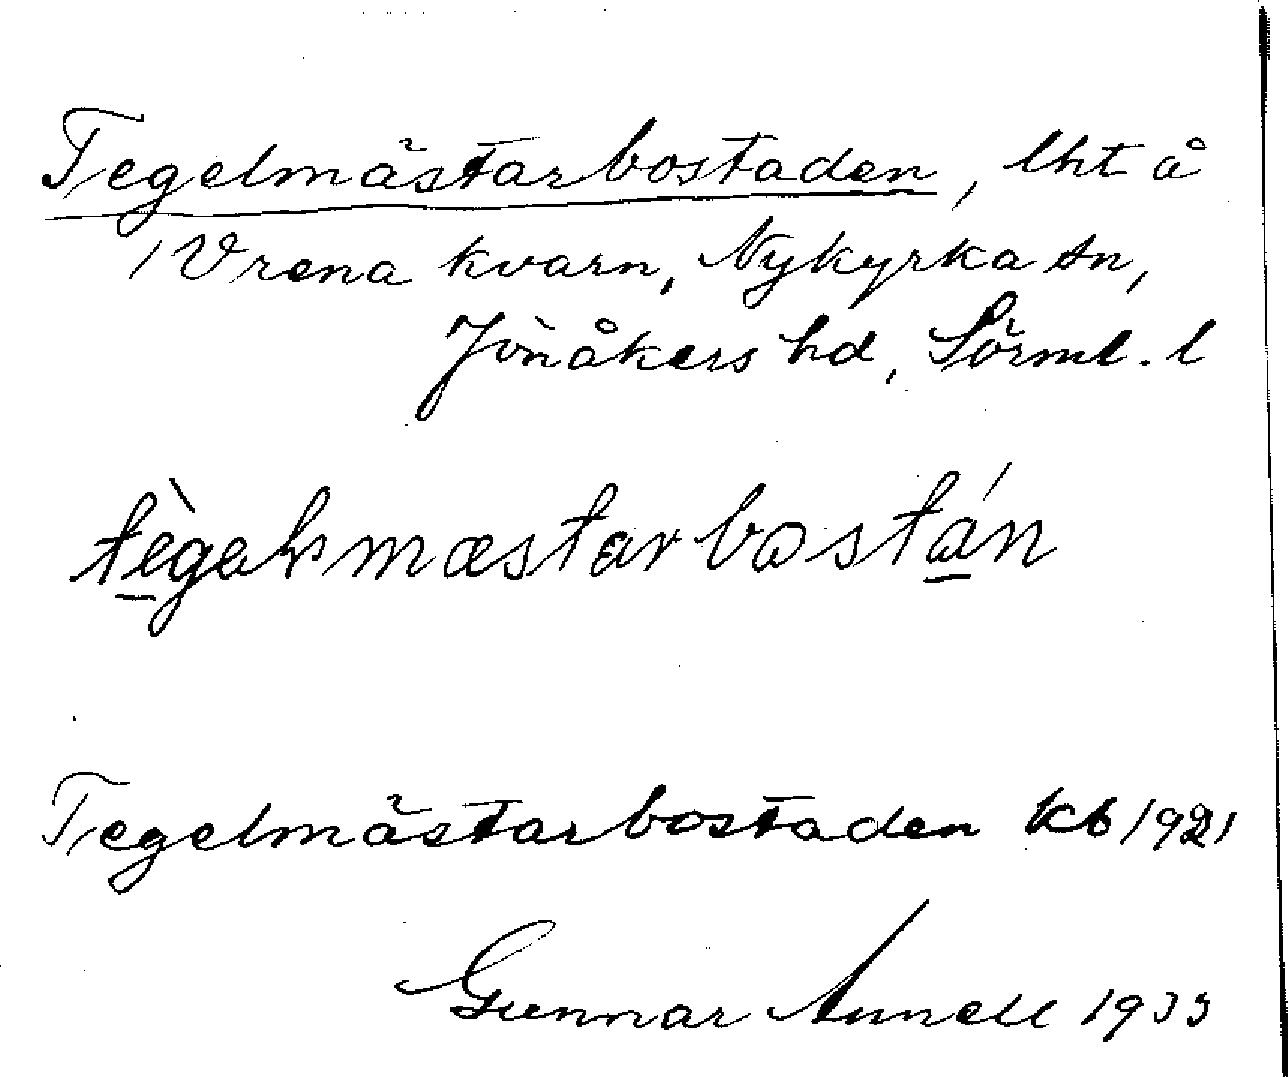 Tegelmästarbostaden, lht å
1 Vrena kvarn, Nykyrka sn,
Jönåkers hd, Sörml. l
tègəlsmæstarbostán
Tegelmästarbostaden kb 1921
Gunnar Annell 1933